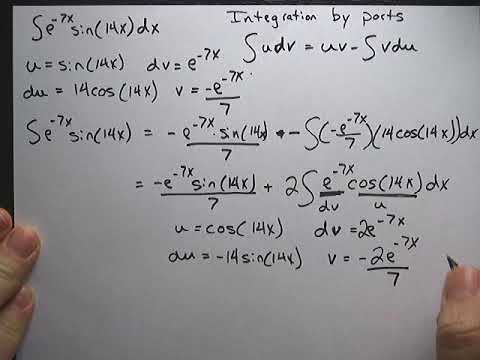 ∫e^-7x sin(14x)dx Integration by parts
∫udv = uv - ∫vdu
u = sin(14x) dv = e^-7x
du = 14cos(14x) v = -e^-7x/7
∫e^-7x sin(14x) = - e^-7x · sin(14x)/7 - ∫(-e^-7x/7)(14cos(14x))dx
= -e^-7x sin(14x)/7 + 2∫e^-7x cos(14x)dx
dv u
u = cos(14x) dv = 2e^-7x
du = -14sin(14x) v = -2e^-7x/7